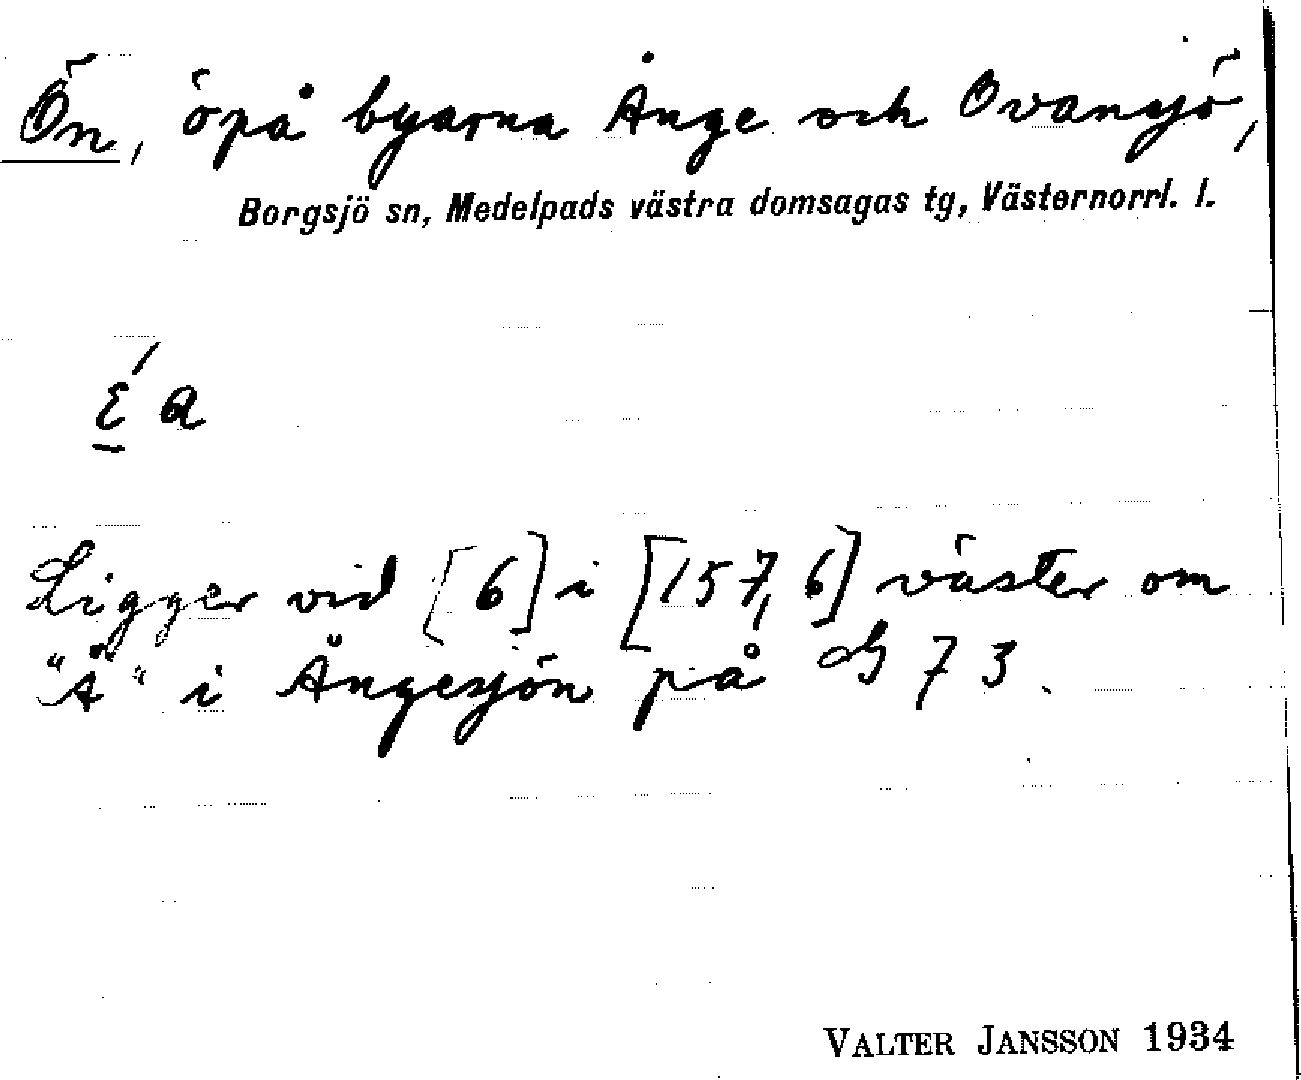 Ön, ö på byarna Ånge och Ovansjö,
Borgsjö sn, Medelpads västra domsagas tg, Västernorrl. l.
ɛ́a
Ligger vid [6] i [157, 6] väster om
"Å" i Ångesjön på G 73.
VALTER JANSSON 1934